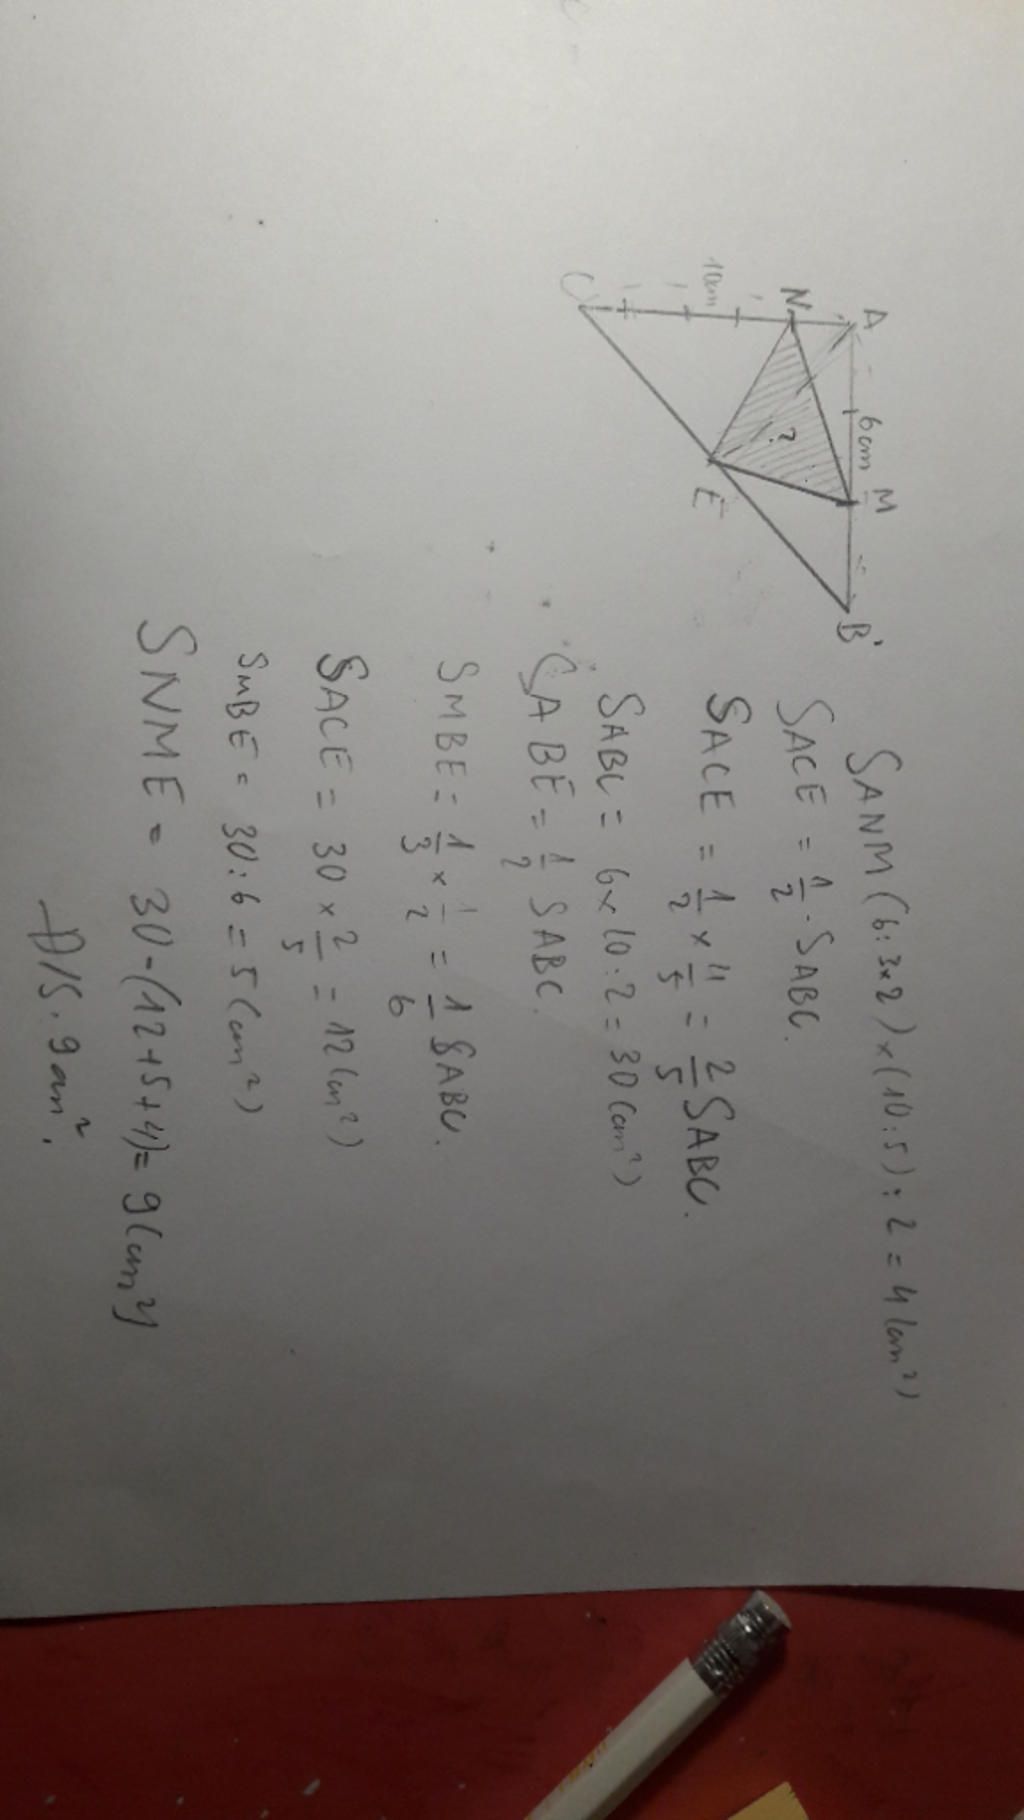 A
6cm
M
B
N
10cm
C
E
?
SANM (6:3x2) x (10:5) : 2 = 4 (cm²)
SACE = 1/2 . SABC.
SACE = 1/2 x 4/5 = 2/5 SABC.
SABC = 6 x 10 : 2 = 30 (cm²)
SABE = 1/2 SABC.
SMBE = 1/3 x 1/2 = 1/6 SABC.
SACE = 30 x 2/5 = 12 (cm²)
SMBE = 30 : 6 = 5 (cm²)
SNME = 30 - (12 + 5 + 4) = 9 (cm²)
Đ/S. 9 cm².